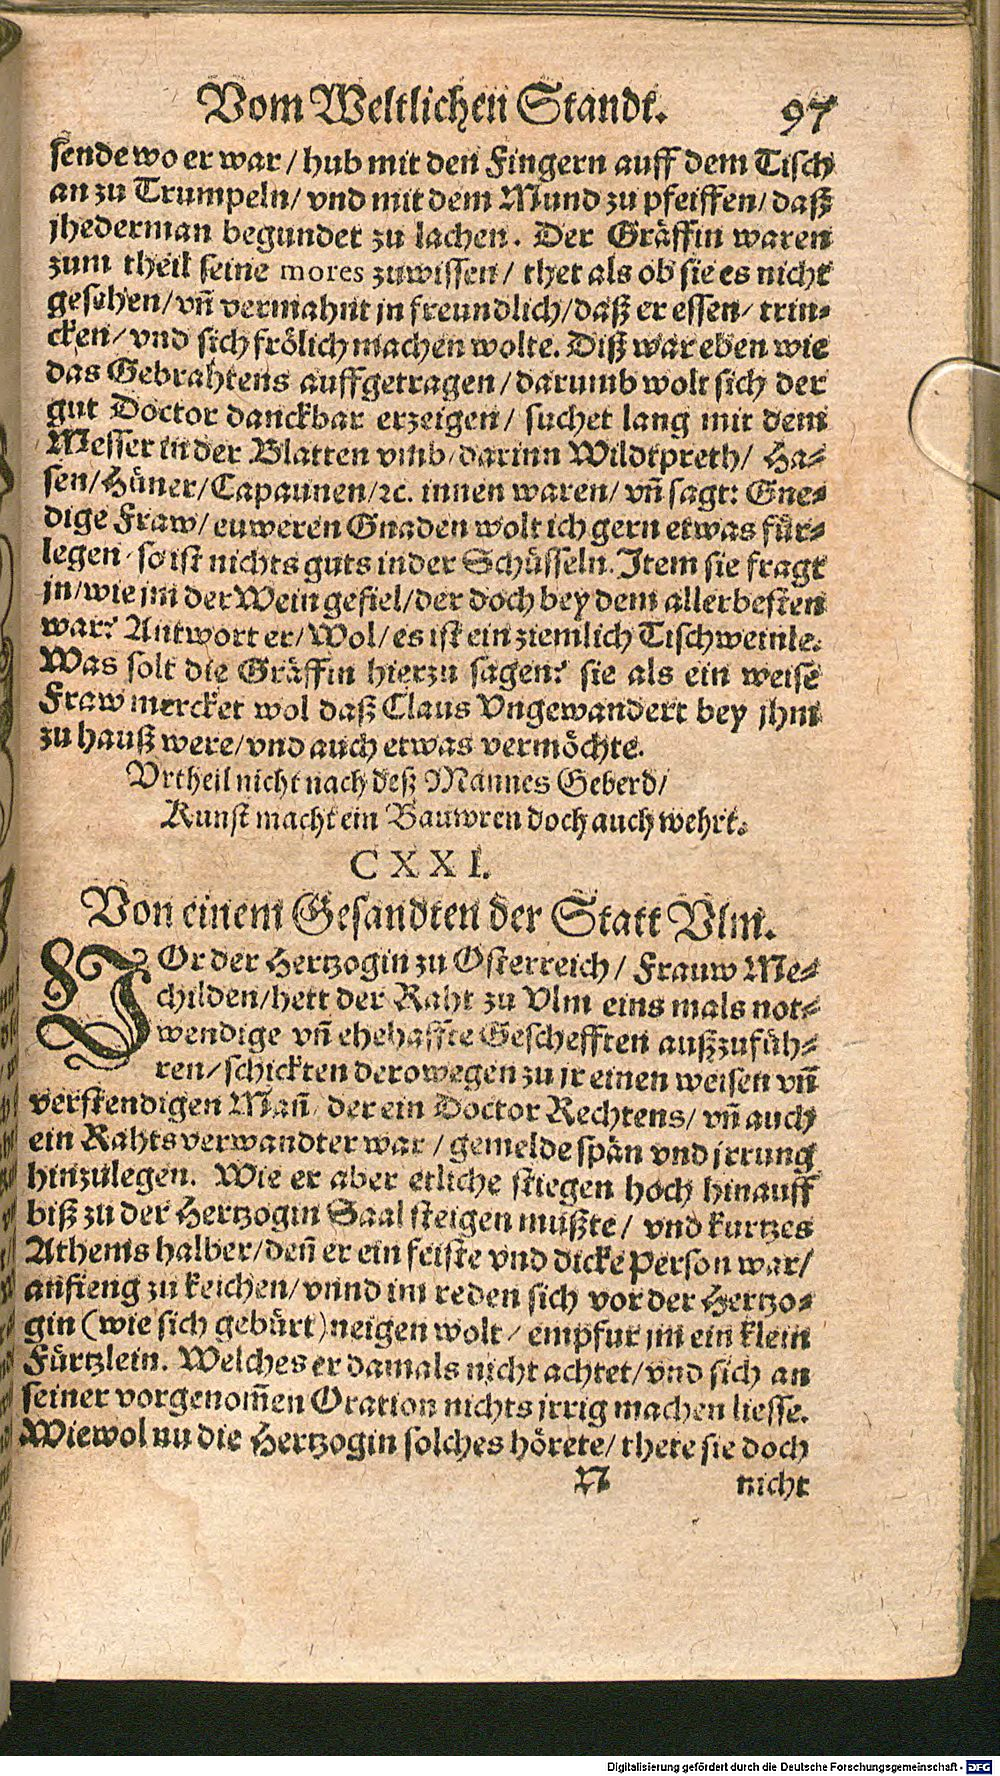 Vom Weltlichen Standt. 97
sende wo er war / hub mit den Fingern auff dem Tisch
an zu Trumpeln / vnd mit dem Mund zu pfeiffen / daß
jhederman begundet zu lachen. Der Gräffin waren
zum theil seine mores zuwissen / thet als ob sie es nicht
gesehen / vñ vermahnt jn freundlich / daß er essen / trin⸗
cken / vnd sich frölich machen wolte. Diß war eben wie
das Gebrahtens auffgetragen / darumb wolt sich der
gut Doctor danckbar erzeigen / suchet lang mit dem
Messer in der Blatten vmb / darinn Wildtpreth / Ha⸗
sen / Hüner / Capaunen / ꝛc. innen waren / vñ sagt: Gne⸗
dige Fraw / euweren Gnaden wolt ich gern etwas für⸗
legen / so ist nichts guts in der Schüsseln. Item sie fragt
jn / wie jm der Wein gefiel / der doch bey dem allerbesten
war? Antwort er / Wol / es ist ein ziemlich Tischweinle.
Was solt die Gräffin hierzu sagen? sie als ein weise
Fraw mercket wol daß Claus Vngewandert bey jhm
zu hauß were / vnd auch etwas vermöchte.
Vrtheil nicht nach deß Mannes Geberd /
Kunst macht ein Bauwren doch auch wehrt.
CXXI.
Von einem Gesandten der Statt Vlm.
VOr der Hertzogin zu Osterreich / Frauw Me⸗
childen / hett der Raht zu Vlm eins mals not⸗
wendige vñ ehehaffte Geschefften außzufüh⸗
ren / schickten derowegen zu jr einen weisen vñ
verstendigen Mañ / der ein Doctor Rechtens / vñ auch
ein Rahtsverwandter war / gemelde spän vnd jrrung
hinzulegen. Wie er aber etliche stiegen hoch hinauff
biß zu der Hertzogin Saal steigen mußte / vnd kurtzes
Athems halber / deñ er ein feiste vnd dicke Person war /
anfieng zu keichen / vnnd im reden sich vor der Hertzo⸗
gin (wie sich gebürt) neigen wolt / empfur jm ein klein
Fürtzlein. Welches er damals nicht achtet / vnd sich an
seiner vorgenom̃en Oration nichts jrrig machen liesse.
Wiewol nu die Hertzogin solches hörete / thete sie doch
N nicht
Digitalisierung gefördert durch die Deutsche Forschungsgemeinschaft - DFG